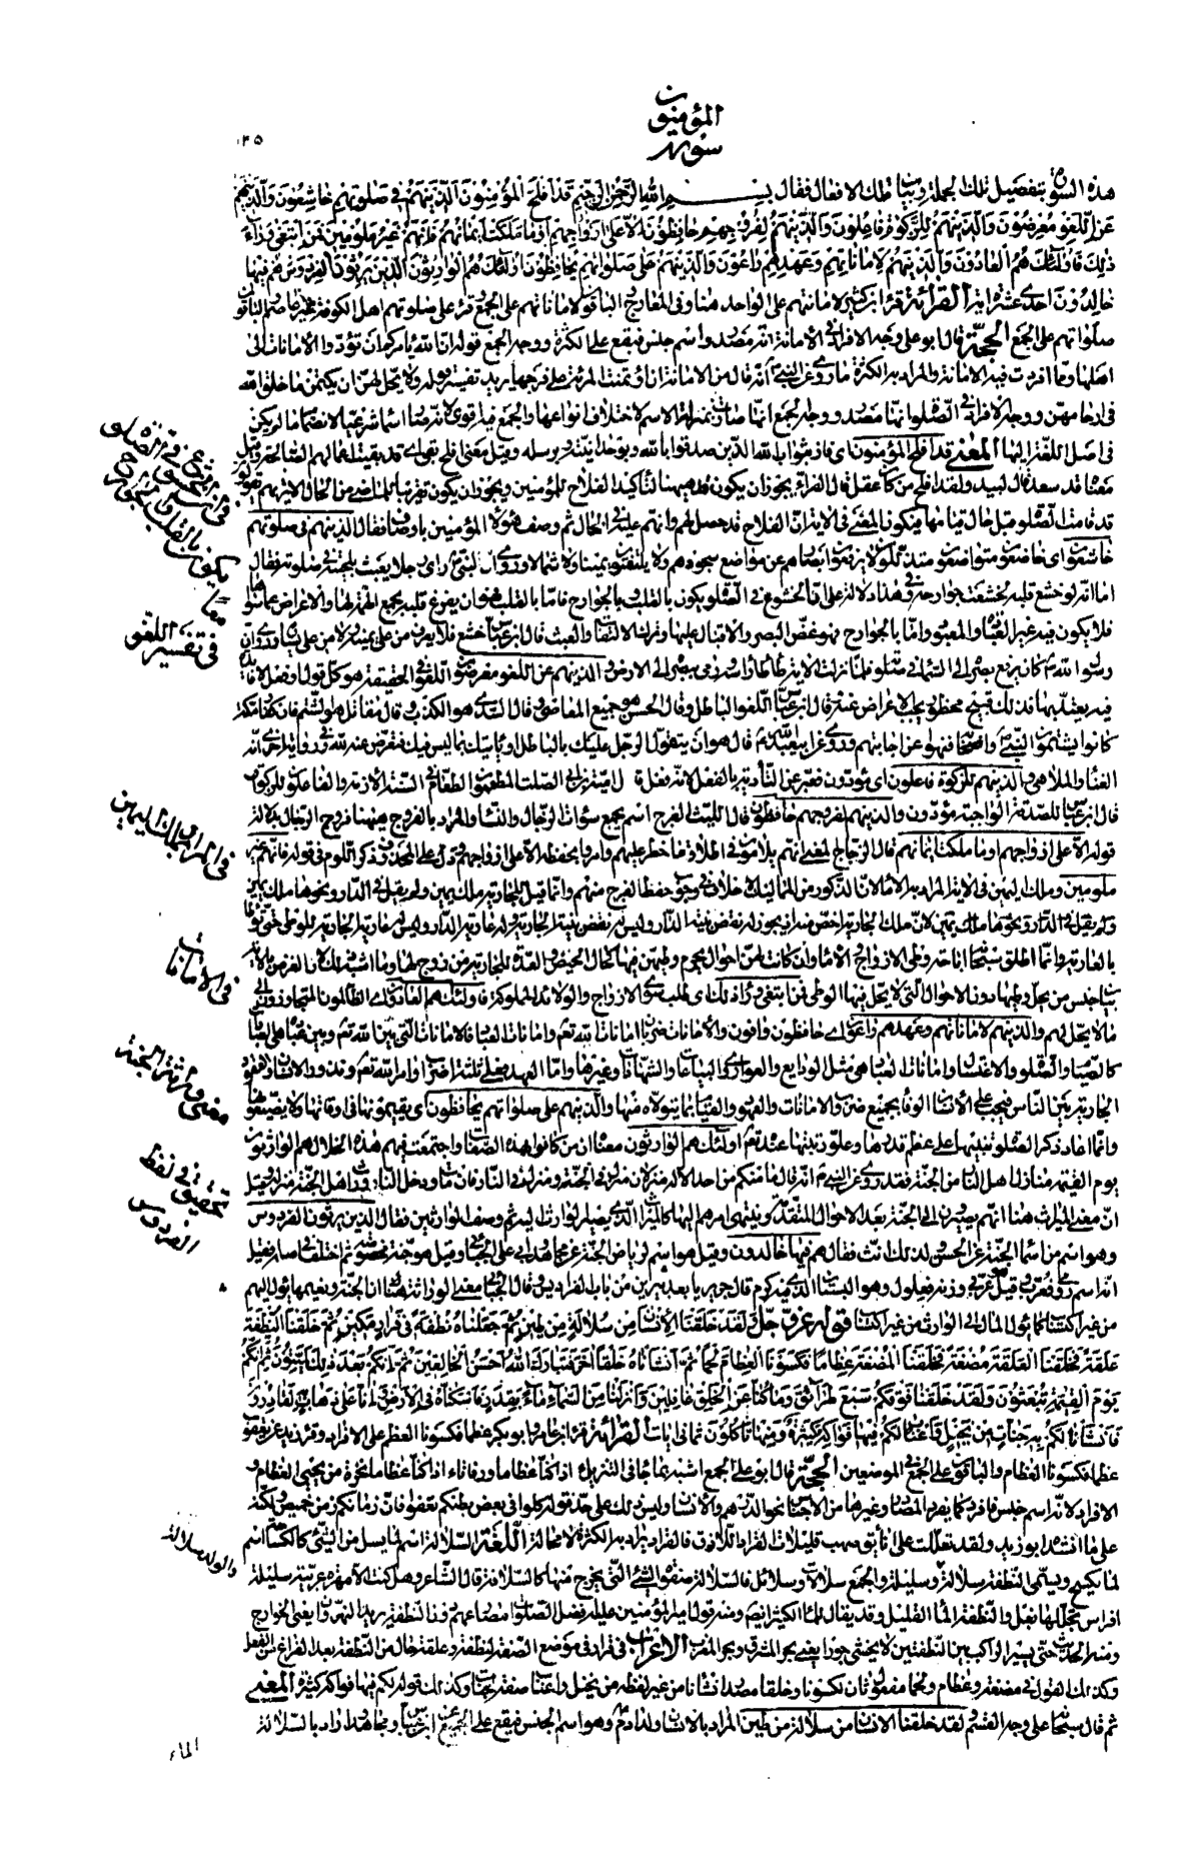 سورة
المؤمنون
هذه السورة بتفصيل تلك الجملة وبيان تلك الافعال فقال بسم الله الرحمن الرحيم قد افلح المؤمنون الذينهم في صلوتهم خاشعون والذينهم
عن اللغو معرضون والذينهم للزكوة فاعلون والذينهم لفروجهم حافظون الا على ازواجهم او ما ملكت ايمانهم فانهم غير ملومين فمن ابتغى وراء
ذلك فاولئك هم العادون والذينهم لاماناتهم وعهدهم راعون والذينهم على صلواتهم يحافظون اولئك هم الوارثون الذين يرثون الفردوس هم فيها
خالدون احدى عشرة اية القرائة قرأ ابن كثير لامانتهم على الواحد هنا وفي المعارج الباقون لاماناتهم على الجمع وقرئ على صلوتهم اهل الكوفة غير عاصم الباقون
صلواتهم على الجمع الحجة قال ابو علي وجه الافراد في الامانة انه مصدر واسم جنس فيقع على الكثرة ووجه الجمع قوله ان الله يأمركم ان تؤدوا الامانات الى
اهلها ومما افردت فيه الامانة والمراد به الكثرة ما روي عن ابي انه قال من الامانة ان اؤتمنت المرئة على فرجها يريد تفسير قوله ولا يحل لهن ان يكتمن ما خلق الله
في ارحامهن ووجه الافراد في الصلوة انها مصدر ووجه الجمع انها صارت بمنزلة الاسم لاختلاف انواعها والجمع فيه اقوى لانه صار اسما شرعيا لانضمام ما لم يكن
في اصل اللغة اليها المعنى قد افلح المؤمنون اي فاز بثواب الله الذين صدقوا بالله وبوحدانيته وبرسله وقيل معنى افلح بقي اي قد بقيت اعمالهم الصالحة وقيل
معناه قد سعد قال لبيد ولقد افلح من كان عقل قال الفراء يجوز ان يكون قد ههنا لتأكيد الفلاح للمؤمنين ويجوز ان يكون تقريبا للماضي من الحال الا تريهم تقولون
قد قامت الصلوة قبل حال قيامها فيكون المعنى في الاية ان الفلاح قد حصل لهم وانهم عليه في الحال ثم وصف هؤلاء المؤمنين باوصاف فقال الذينهم في صلوتهم
خاشعون اي خاضعون متواضعون متذللون لا يرفعون ابصارهم عن مواضع سجودهم ولا يلتفتون يمينا ولا شمالا وروي ان النبي راى رجلا يعبث بلحيته في صلوته فقال
اما انه لو خشع قلبه لخشعت جوارحه وفي هذا دلالة على ان الخشوع في الصلوة يكون بالقلب وبالجوارح فاما بالقلب فهو ان يفرغ قلبه بجمع الهمة لها والاعراض عما سواها
فلا يكون فيه غير العبادة والمعبود واما بالجوارح فهو غض البصر والاقبال عليها وترك الالتفات والعبث قال ابن عباس خشع فلا يعرف من على يمينه ولا من على يساره وروي ان
رسول الله كان يرفع بصره الى السماء في صلوته فلما نزلت الاية طأطأ رأسه ورمى ببصره الى الارض والذينهم عن اللغو معرضون اللغو في الحقيقة هو كل قول وفعل لا فائدة
فيه يعتد بها فذلك قبيح محظور يجب الاعراض عنه قال ابن عباس اللغو الباطل وقال الحسن هو جميع المعاصي وقال السدي هو الكذب وقال مقاتل هو الشتم فان كفار مكة
كانوا يشتمون النبي واصحابه فنهوا عن اجابتهم وروي عن ابي عبد الله قال هو ان يتقول الرجل عليك بالباطل او يأتيك بما ليس فيك فتعرض عنه لله وفي رواية اخرى انه
الغناء والملاهي والذينهم للزكوة فاعلون اي مؤدون فعبر عن التأدية بالفعل لانه فعل قال امية بن ابي الصلت المطعمون الطعام في السنة الازمة والفاعلون للزكوات
قال ابن عباس للصدقة الواجبة مؤدون والذينهم لفروجهم حافظون قال الليث الفرج اسم يجمع سوآت الرجال والنساء والمراد بالفروج ههنا فروج الرجال بدلالة
قوله الا على ازواجهم او ما ملكت ايمانهم قال الزجاج المعنى انهم يلامون في اطلاق ما حظر عليهم وامروا بحفظه الا على ازواجهم ودل على المحذوف ذكر اللوم في قوله فانهم غير
ملومين وملك اليمين في الاية المراد به الاماء لان الذكور من المماليك لا خلاف في وجوب حفظ الفرج منهم وانما قيل للجارية ملك يمين ولم يقل في الدار ونحوها ملك يمين
لان ملك الجارية اخص منه اذ يجوز له نقض بنية الدار وليس له نقض بنية الجارية وله عارية الدار وليس له عارية الجارية للوطي حتى توطأ
بالعارية وانما اطلق سبحانه اباحة وطي الازواج والاماء وان كانت لهن احوال يحرم وطيهن فيها كحال الحيض والعدة للجارية من زوج لها وما اشبه ذلك لان الغرض بالاية
بيان جنس من يحل وطيها دون الاحوال التي لا يحل فيها الوطي فمن ابتغى وراء ذلك اي طلب سوى الازواج والولائد المملوكة فاولئك هم العادون اي الظالمون المتجاوزون الى
ما لا يحل لهم والذينهم لاماناتهم وعهدهم راعون اي حافظون وافون والامانات ضربان امانات الله تعالى وامانات العباد فالامانات التي بين الله تعالى وبين عباده هي العبادات
كالصيام والصلوة والاغتسال وامانات العباد هي مثل الودايع والعواري والبياعات والشهادات وغيرها واما العهد فعلى ثلثة اضرب اوامر الله تعالى ونذور الانسان والعقود
الجارية بين الناس فيجب على الانسان الوفاء بجميع ضروب الامانات والعهود والقيام بما يتولاه منها والذينهم على صلواتهم يحافظون اي يقيمونها في اوقاتها ولا يضيعونها
وانما اعاد ذكر الصلوة تنبيها على عظم قدرها وعلو رتبتها عنده تعالى اولئك هم الوارثون معناه ان من كانوا بهذه الصفات واجتمعت فيهم هذه الخلال هم الوارثون
يوم القيمة منازل اهل النار من الجنة فقد روي عن النبي انه قال ما منكم من احد الا له منزلان منزل في الجنة ومنزل في النار فان مات ودخل النار ورث اهل الجنة منزله وقيل
ان معنى الميراث هنا انهم يصيرون الى الجنة بعد الاحوال المتقدمة وينتهي امرهم اليها كالميراث الذي يصير الوارث اليه ثم وصف الوارثين فقال الذين يرثون الفردوس
وهو اسم من اسماء الجنة عن الحسن ولذلك انث فقال هم فيها خالدون وقيل هو اسم لرياض الجنة عن مجاهد وابي علي الجبائي وقيل هو جنة مخصوصة ثم اختلف في اصله فقيل
انه اسم رومي فعرب وقيل هو عربي ووزنه فعلول وهو البستان الذي فيه كرم قال جرير يا بعد يبرين من باب الفراديس وقال الجبائي معنى الوراثة هنا ان الجنة ونعيمها يؤل اليهم
من غير اكتساب كما يؤل المال الى الوارث من غير اكتساب قوله عز وجل لقد خلقنا الانسان من سلالة من طين ثم جعلناه نطفة في قرار مكين ثم خلقنا النطفة
علقة فخلقنا العلقة مضغة فخلقنا المضغة عظاما فكسونا العظام لحما ثم انشأناه خلقا اخر فتبارك الله احسن الخالقين ثم انكم بعد ذلك لميتون ثم انكم
يوم القيمة تبعثون ولقد خلقنا فوقكم سبع طرائق وما كنا عن الخلق غافلين وانزلنا من السماء ماء بقدر فاسكناه في الارض وانا على ذهاب به لقادرون
فانشأنا لكم به جنات من نخيل واعناب لكم فيها فواكه كثيرة ومنها تأكلون ثماني ايات القرائة قرأ ابن عامر وابو بكر عظما فكسونا العظم على الافراد وقرأ زيد عن يعقوب
عظما فكسونا العظام والباقون على الجمع في الموضعين الحجة قال ابو علي الجمع اشبه بما جاء في التنزيل ائذا كنا عظاما ورفاتا ءاذا كنا عظاما نخرة من يحيي العظام و
الافراد لانه اسم جنس فافرد كما يفرد المصادر وغيرها من الاجناس نحو الدرهم والانسان وليس ذلك على حد قوله كلوا في بعض بطنكم تعفوا فان زمانكم زمن خميص ولكنه
على ما انشده ابو زيد ولقد تعللت على ذيابق سهب قليلات القراد اللازق فالقراد يراد به الكثرة لا محالة اللغة السلالة اسم لما يسل من الشيء كالكساحة اسم
لما يكسح ويسمى النطفة سلالة وسليلة والجمع سلالات وسلائل فالسلالة صفوة الشيء التي يخرج منها كالسلافة قال الشاعر وهل كنت الا مهرة عربية سليلة
افراس تجللها بغل والنطفة الماء القليل وقد يقال للماء الكثير ايضا ومنه قول امير المؤمنين عليه افضل الصلوات مصارعهم دون النطفة يريد النهروان يعني الخوارج
ومنه الحديث حتى يسير الراكب بين النطفتين لا يخشى جورا يعني بحر المشرق وبحر المغرب الاعراب في قرار في موضع الصفة لنطفة وعلقة حال من النطفة بعد الفراغ من الفعل
وكذلك القول في مضغة وعظام ولحما مفعول ثان لكسونا وخلقا مصدر انشأنا من غير لفظه من نخيل واعناب صفة جنات وكذلك قوله لكم فيها فواكه كثيرة المعنى
ثم قال سبحانه على وجه القسم ولقد خلقنا الانسان من سلالة من طين المراد بالانسان ولد ادم وهو اسم الجنس فيقع على الجميع عن ابن عباس ومجاهد اراد بالسلالة
الماء
في تفسير اللغو
في المراد بملك اليمين
في الامانات
معنى وراثة الجنة
تحقيق في لفظ
الفردوس
والولد سلالة